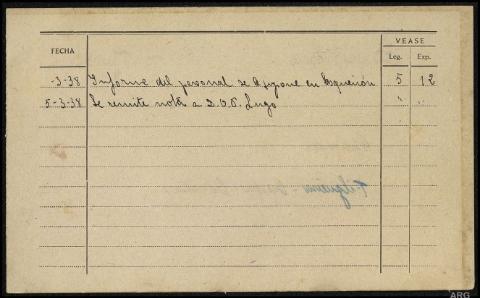 VEASE
FECHA
Leg. Exp.
-3-38 Informe del personal se en 5 12
5-3-38 Se remite nota a S.O.E. Lugo " "
ARG